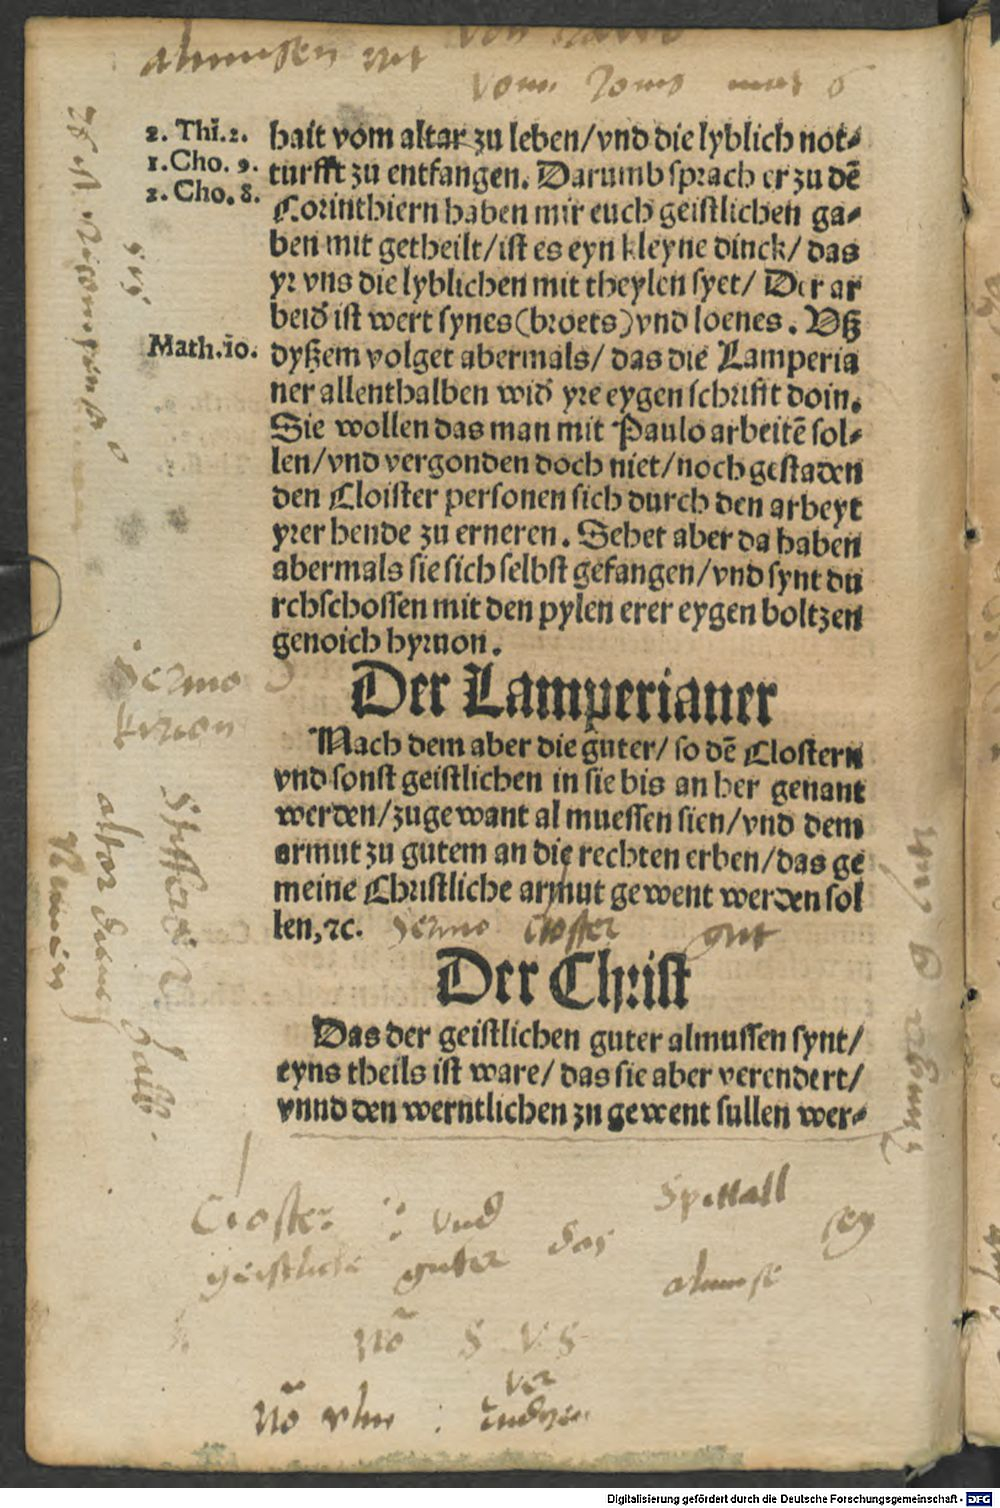 almussen
2. Thi. 2.
1. Cho. 9.
2. Cho. 8.
Math. 10.
hait vom altar zu leben/vnd die lyblich not⸗
turfft zu entfangen. Darumb sprach er zu dē
Corinthiern haben mir euch geistlichen ga⸗
ben mit getheilt/ist es eyn kleyne dinck/ das
yr vns die lyblichen mit theylen syet/ Der ar
beid̄ ist wert synes(broets)vnd loenes. Vß
dyßem volget abermals/ das die Lamperia
ner allenthalben wid̄ yre eygen schrifft doin.
Sie wollen das man mit Paulo arbeitē sol⸗
len/vnd vergonden doch niet/noch gestaden
den Cloister personen sich durch den arbeyt
yrer hende zu erneren. Sehet aber da haben
abermals sie sich selbst gefangen/vnd synt du
rchschossen mit den pylen erer eygen boltzen
genoich hyruon.
Der Lamperianer
Nach dem aber die guter/ so dē Clostern
vnd sonst geistlichen in sie bis an her genant
werden/zugewant almuessen sien/vnd dem
armut zu gutem an die rechten erben/das ge
meine Christliche armut gewent werden sol
len,ꝛc.
closter gut
Der Christ
Das der geistlichen guter almussen synt/
eyns theils ist ware/ das sie aber verendert/
vnnd den werntlichen zu gewent sullen wer⸗
Closter vnd Spittall
geistliche guter das almuse sey
Digitalisierung gefördert durch die Deutsche Forschungsgemeinschaft - DFG